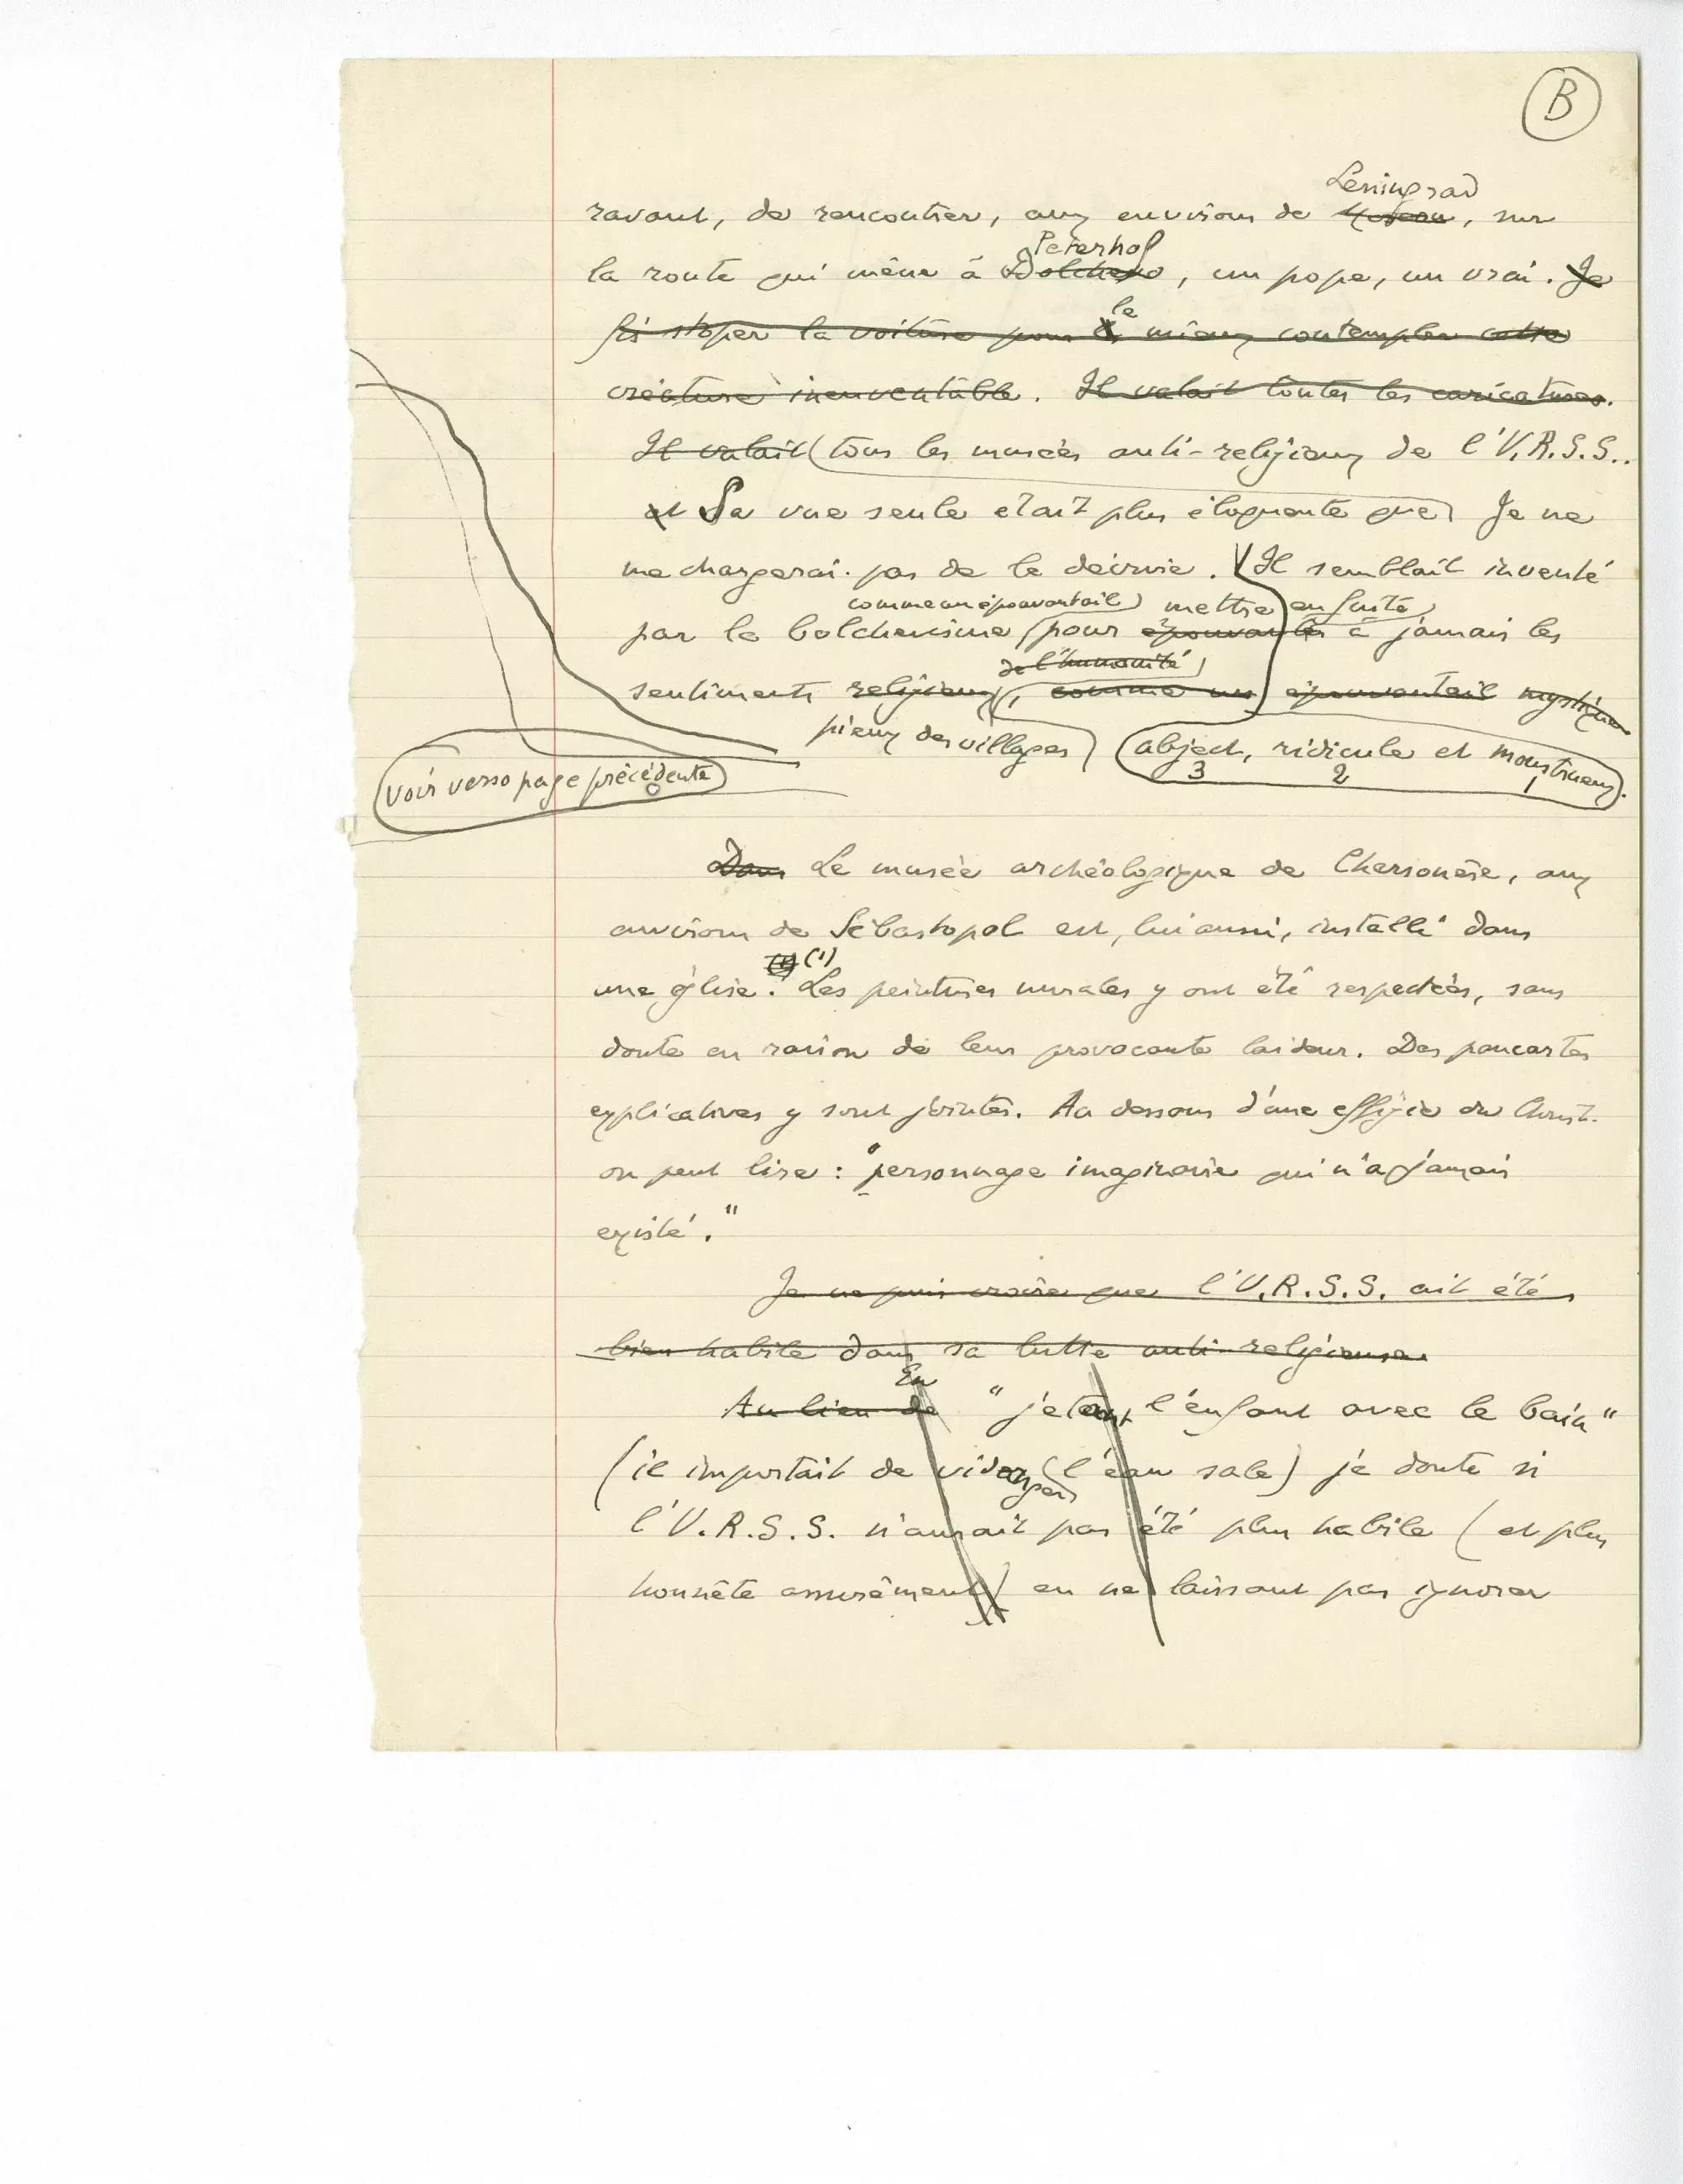 B
Leningrad
ravant, de rencontrer, aux environs de Moscou, sur
Peterhof
la route qui mène à Bolchevo, un pope, un vrai. Je
le
fis stoper la voiture pour mieux contempler cette
créature ininventable. Il valait toutes les caricatures.
Il valait (tous les musées anti-religieux de l'U.R.S.S..
et Sa vue seule était plus éloquente que) Je ne
me chargerai pas de le décrire. Il semblait inventé
comme un épouvantail) mettre en fuite
par le bolchevisme (pour épouvanter à jamais les
de l'humanité
sentiments religieux, comme un épouvantail mystique
pieux des villages) (abject, ridicule et monstrueux.
3 2 1
voir verso page précédente
Dans Le musée archéologique de Chersonèse, aux
environs de Sébastopol est, lui aussi, installé dans
(1) (1)
une église. Les peintures murales y ont été respectées, sans
doute en raison de leur provocante laideur. Des pancartes
explicatives y sont jointes. Au dessous d'une effigie du Christ.
on peut lire : "personnage imaginaire qui n'a jamais
existé."
Je ne puis croire que l'U.R.S.S. ait été
bien habile dans sa lutte anti-religieuse
En
Au lieu de "jetant l'enfant avec le bain"
(il importait de vidanger l'eau sale) je doute si
l'U.R.S.S. n'aurait pas été plus habile (et plus
honnête assurément) en ne laissant pas ignorer